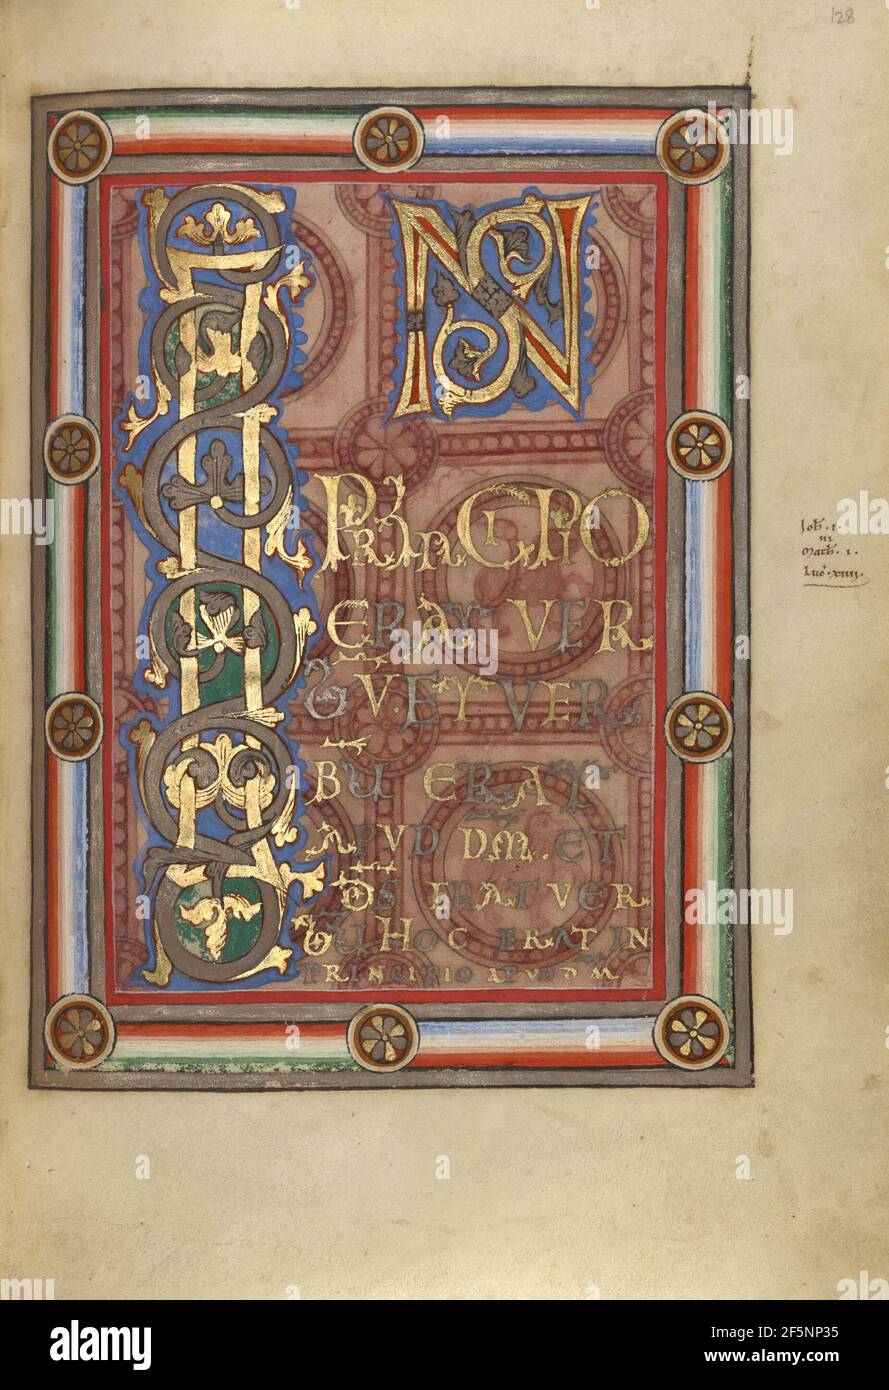 128
IN
PRINCIPIO
ERAT VER
BU. ET VER
BU ERAT
APUD DM. ET
DS ERAT VER
BU HOC ERAT IN
PRINCIPIO APUD DM
Joh . 1 .
III
Math . 1 .
Luc . xiiii .
alamy
Image ID: 2F5NP35
www.alamy.com